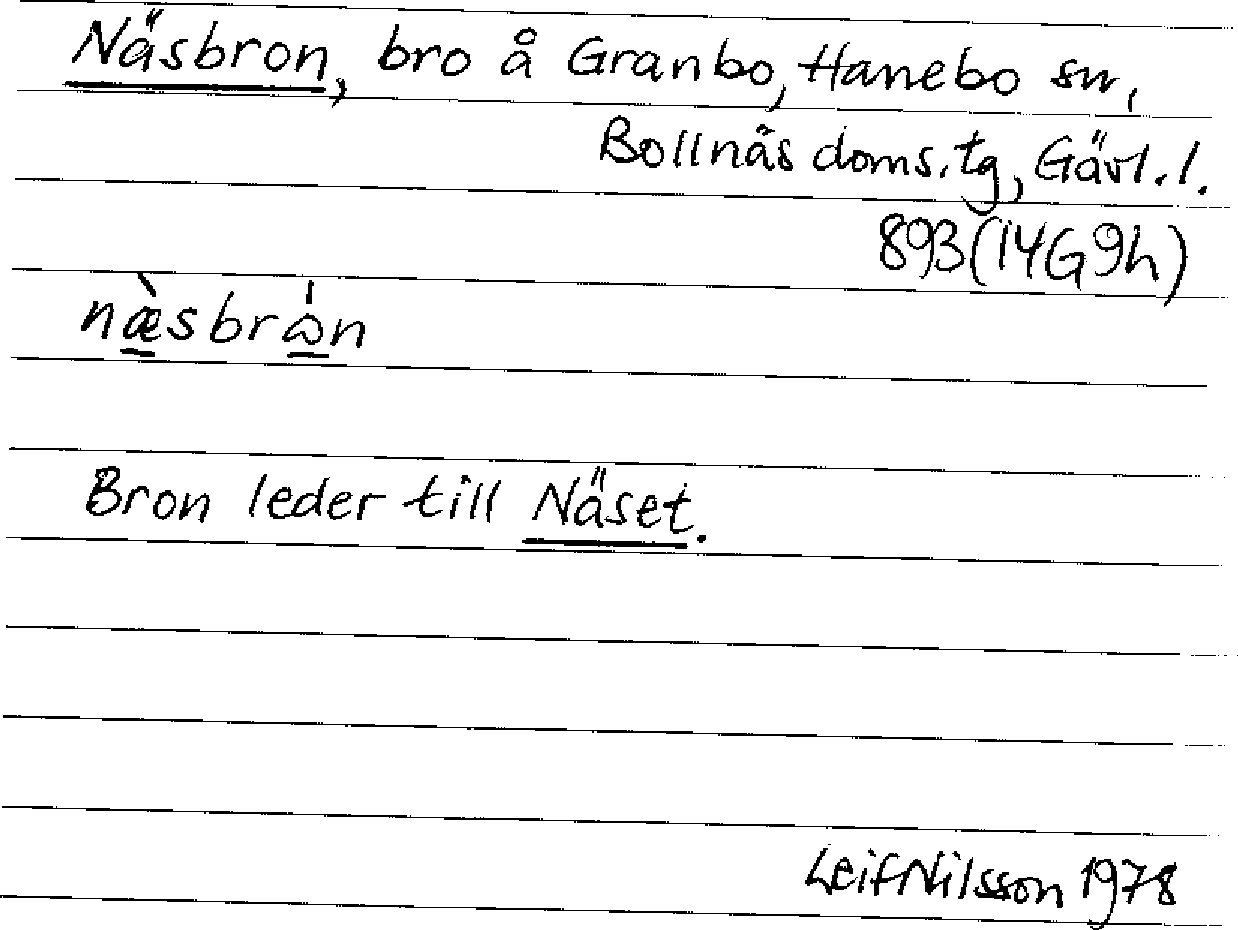 Näsbron, bro å Granbo, Hanebo sn,
Bollnäs doms.tg, Gävl.l.
893(14G9h)
næ̠̀sbrω̠̍n
Bron leder till Näset.
Leif Nilsson 1978